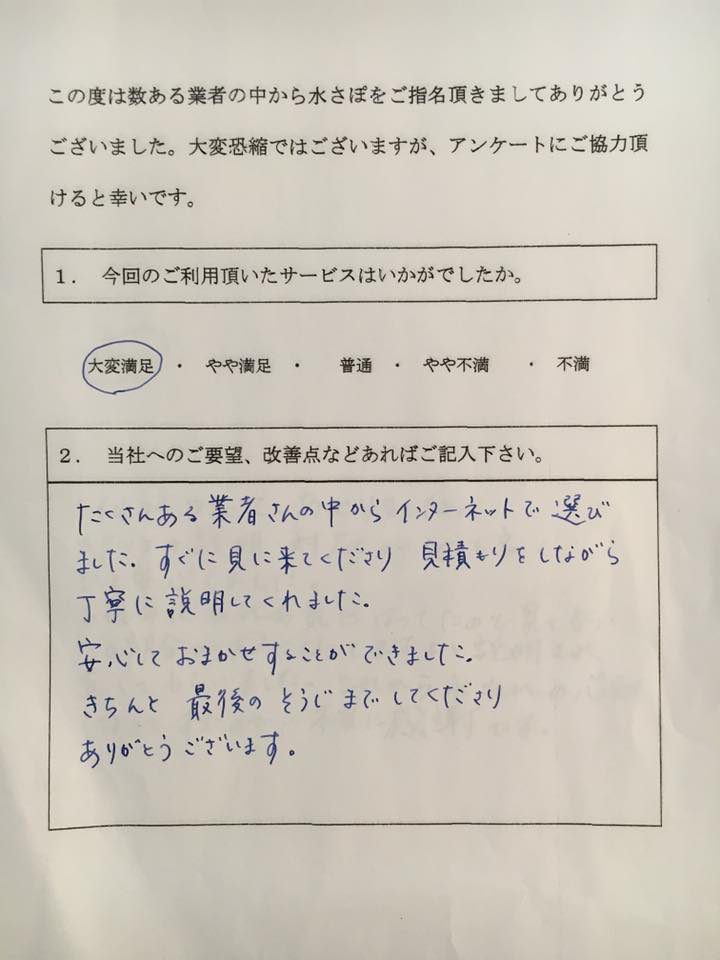 この度は数ある業者の中から水さぽをご指名頂きましてありがとう
ございました。大変恐縮ではございますが、アンケートにご協力頂
けると幸いです。
１．　今回のご利用頂いたサービスはいかがでしたか。
大変満足　・　やや満足　・　普通　・　やや不満　・　不満
２．　当社へのご要望、改善点などあればご記入下さい。
たくさんある業者さんの中からインターネットで選び
ました。すぐに見に来てくださり 見積もりをしながら
丁寧に説明してくれました。
安心しておまかせすることができました。
きちんと 最後の そうじまでしてくださり
ありがとうございます。